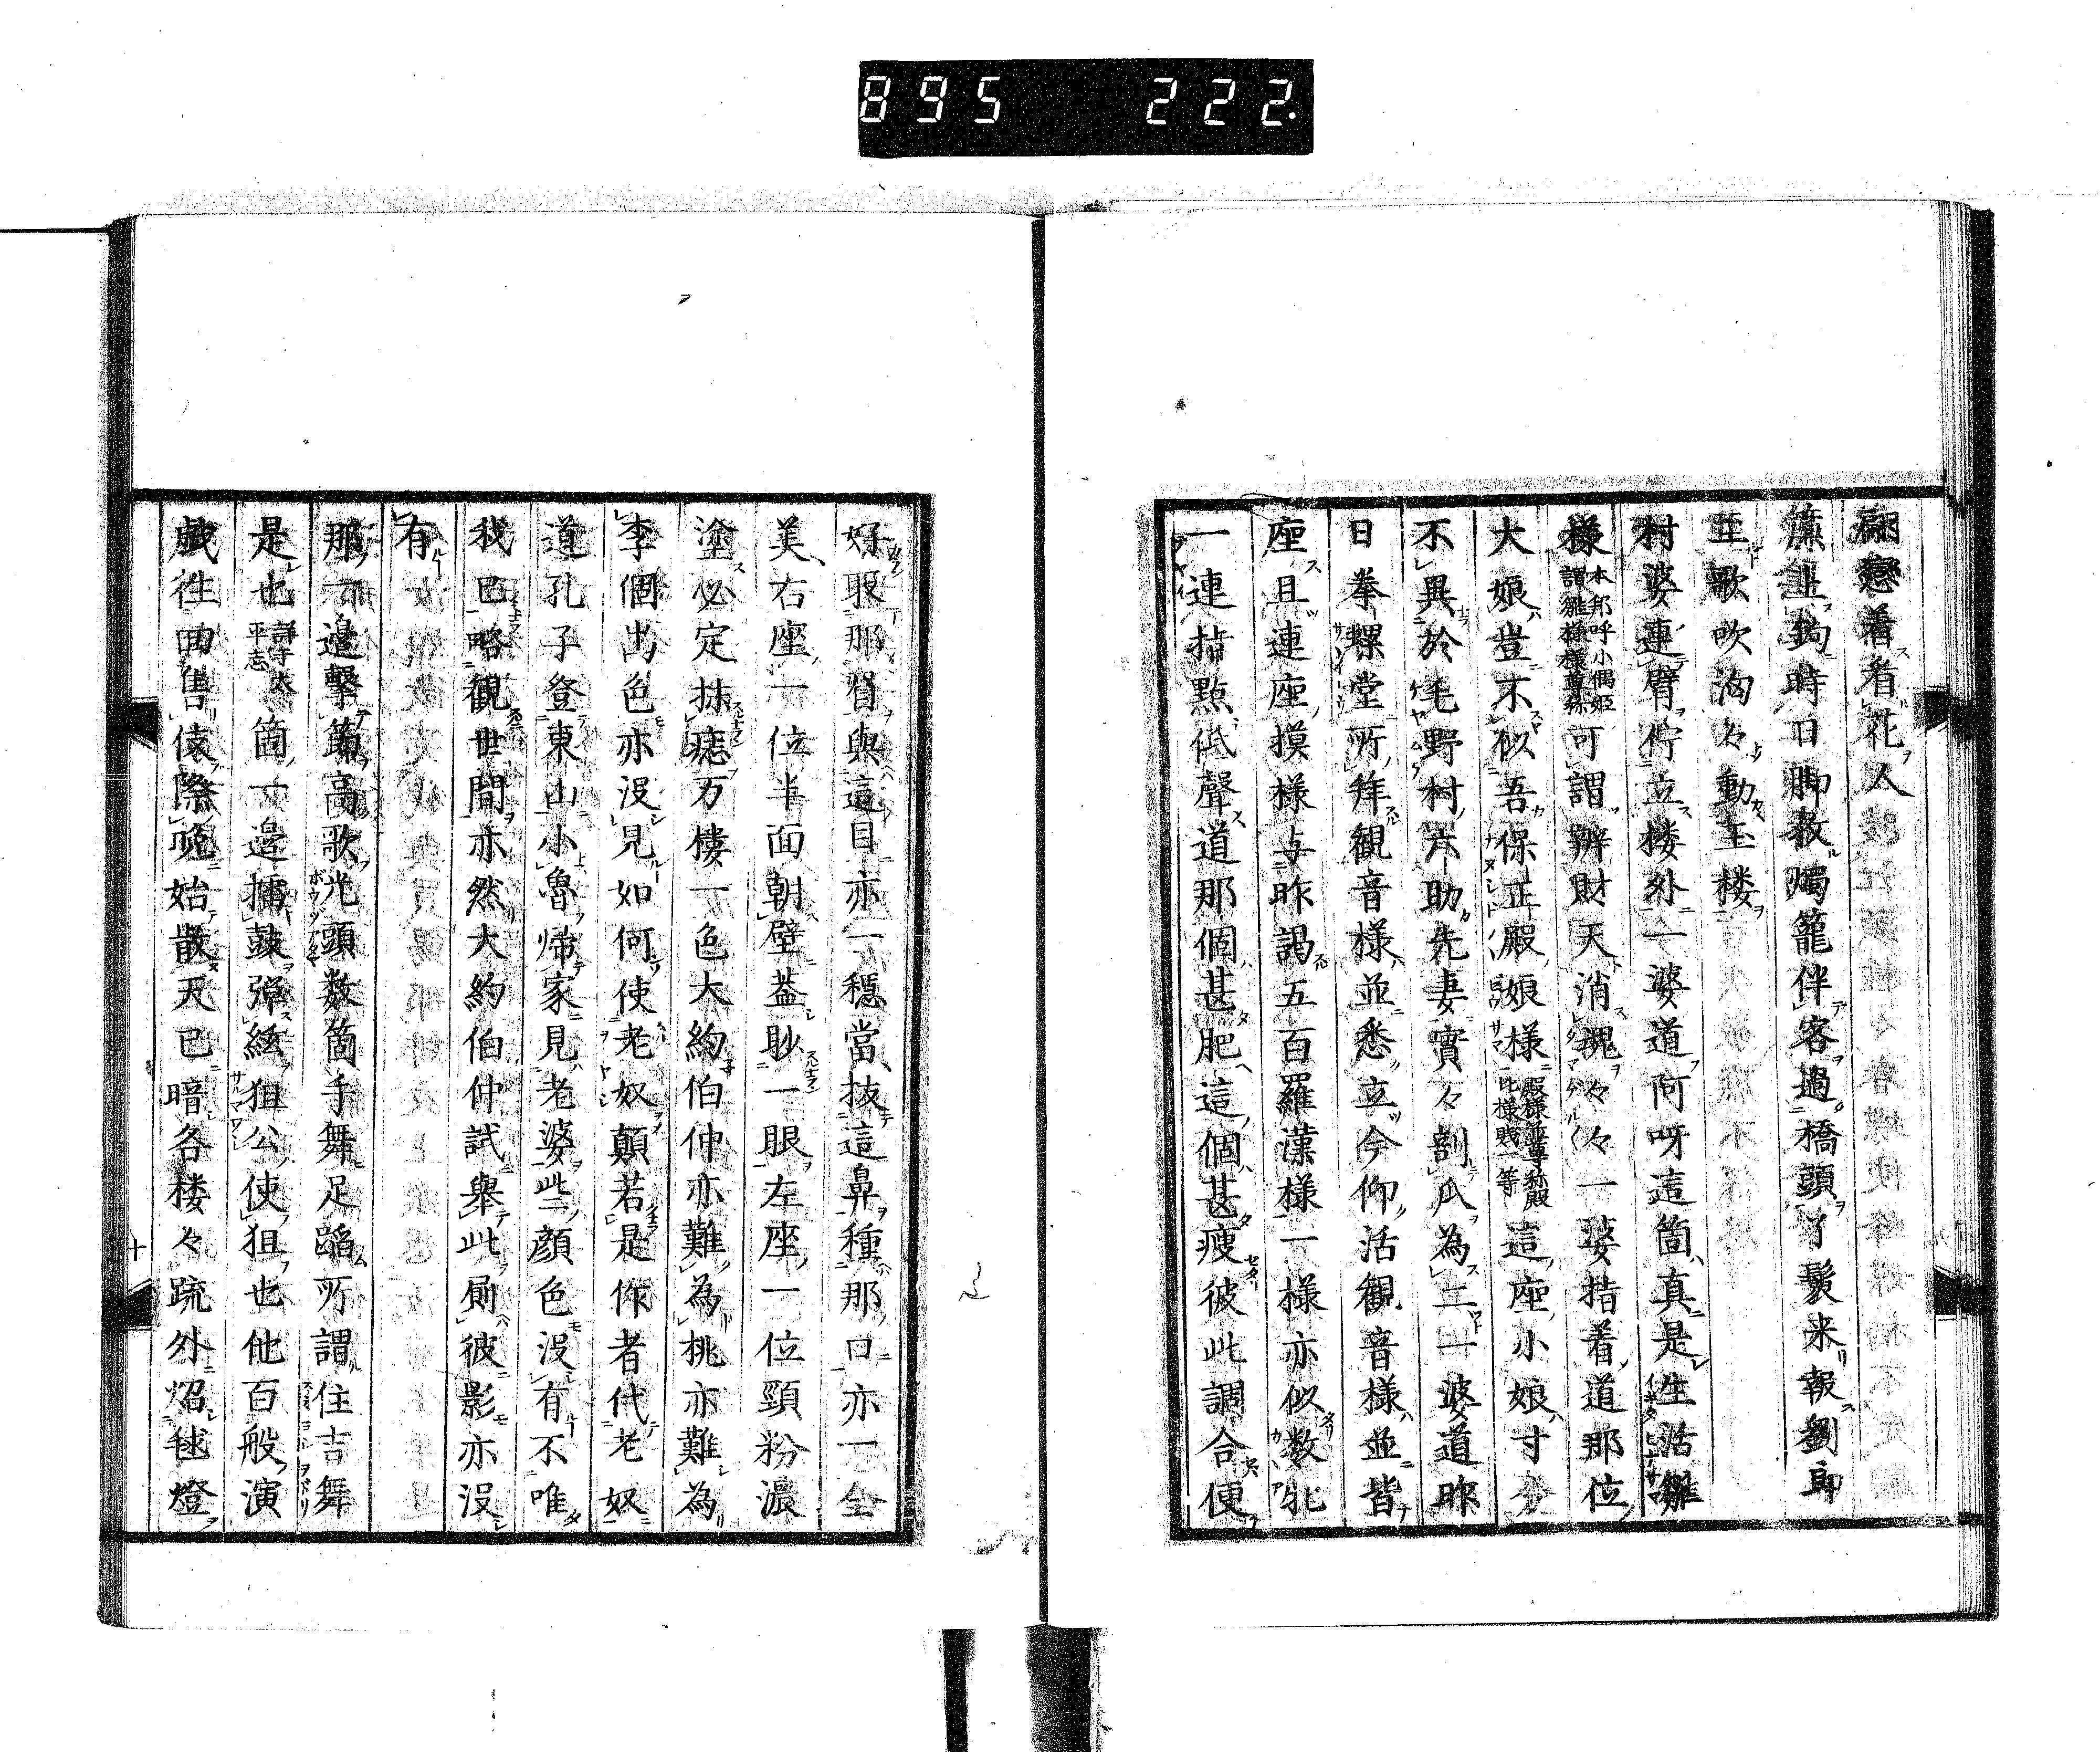 895 222.
翩戀着看花人
簾上鈎時日脚教燭籠伴客過橋頭了鬟来報劉郎
至歌吹洶々動玉楼
村婆連臂佇立楼外一婆道阿呀這箇真是生活雛
様本邦呼小偶姫謂雛様様尊称可謂辨財天消魂々々々一婆指着道那位
大娘豈不似吾保正殿娘様殿様並尊称殿比様賤一等這座小娘寸分
不異於毛野村六助先妻實々剖瓜為二一婆道昨
日拳螺堂所拜観音様並悉立今仰活観音様並皆
座且連座摸様与昨謁五百羅漢様一様亦似数牝
一連指點低聲道那個甚肥這個甚痩彼此調合便
好眼那眉與這目亦一穏當抜這鼻種那口亦一全
美右座一位半面朝壁蓋眇一眼左座一位頸粉濃
塗必定抹痣万楼一色大約伯仲亦難為桃亦難為
李個出色亦没見如何使老奴顛若是作者代老奴
道孔子登東山小魯帰家見老婆些顔色没有不唯
我已略観世間亦然大約伯仲試舉此厠彼影亦没
有
那一邉撃節高歌光頭数箇手舞足蹈所謂住吉舞
是也平志一箇一邉擂鼓弾絃狙公使狙也他百般演
戯徃回售儘際晩始散天已暗各楼々疏外炤毬燈
十